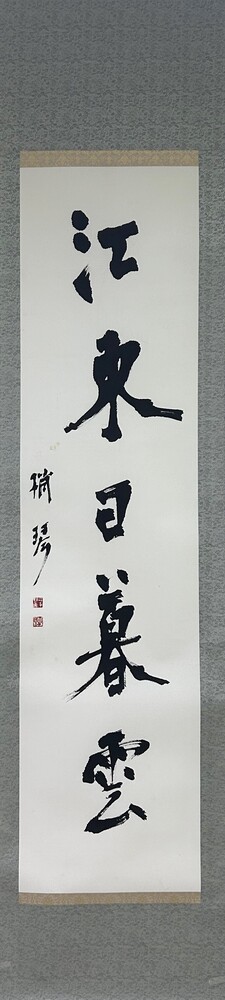 江東日暮雲